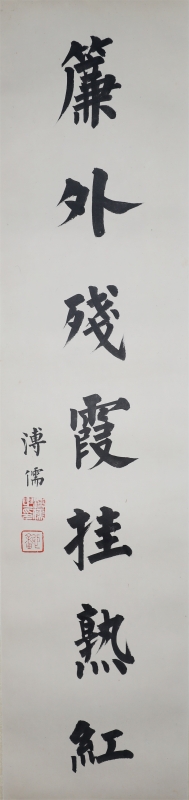 簾外殘霞挂熟紅
溥儒